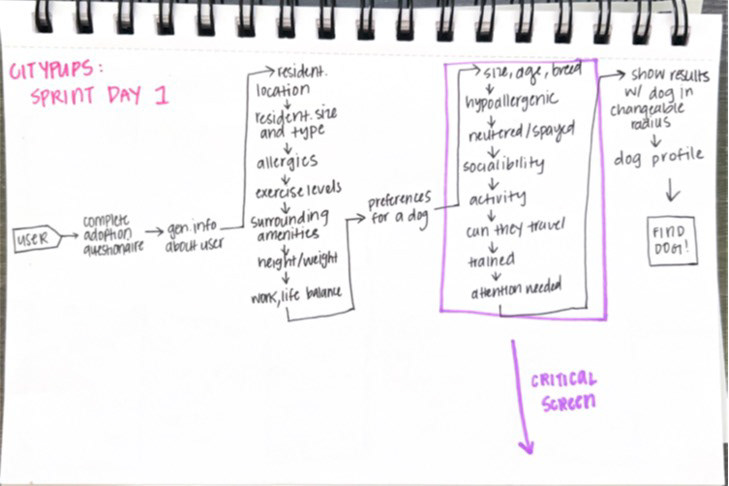 CITYPUPS:
SPRINT DAY 1
USER
complete
adoption
questionaire
gen. info
about user
resident.
location
resident. size
and type
allergies
exercise levels
surrounding
amenities
height/weight
work, life balance
preferences
for a dog
size, age, breed
hypoallergenic
neutered/spayed
socialibility
activity
can they travel
trained
attention needed
show results
w/ dog in
changeable
radius
dog profile
FIND
DOG!
CRITICAL
SCREEN